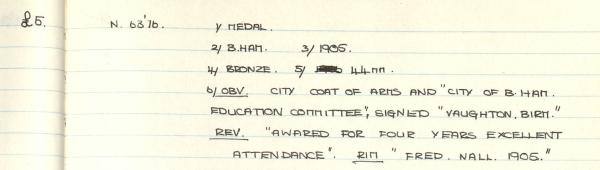 £5. N. 63'76. 1/ MEDAL.
2/ B.HAM. 3/ 1905.
4/ BRONZE. 5/ 44mm.
6/ OBV. CITY COAT OF ARMS AND "CITY OF B.HAM.
EDUCATION COMMITTEE", SIGNED "VAUGHTON, BIRM."
REV. "AWARED FOR FOUR YEARS EXCELLENT
ATTENDANCE". RIM "FRED. NALL. 1905."